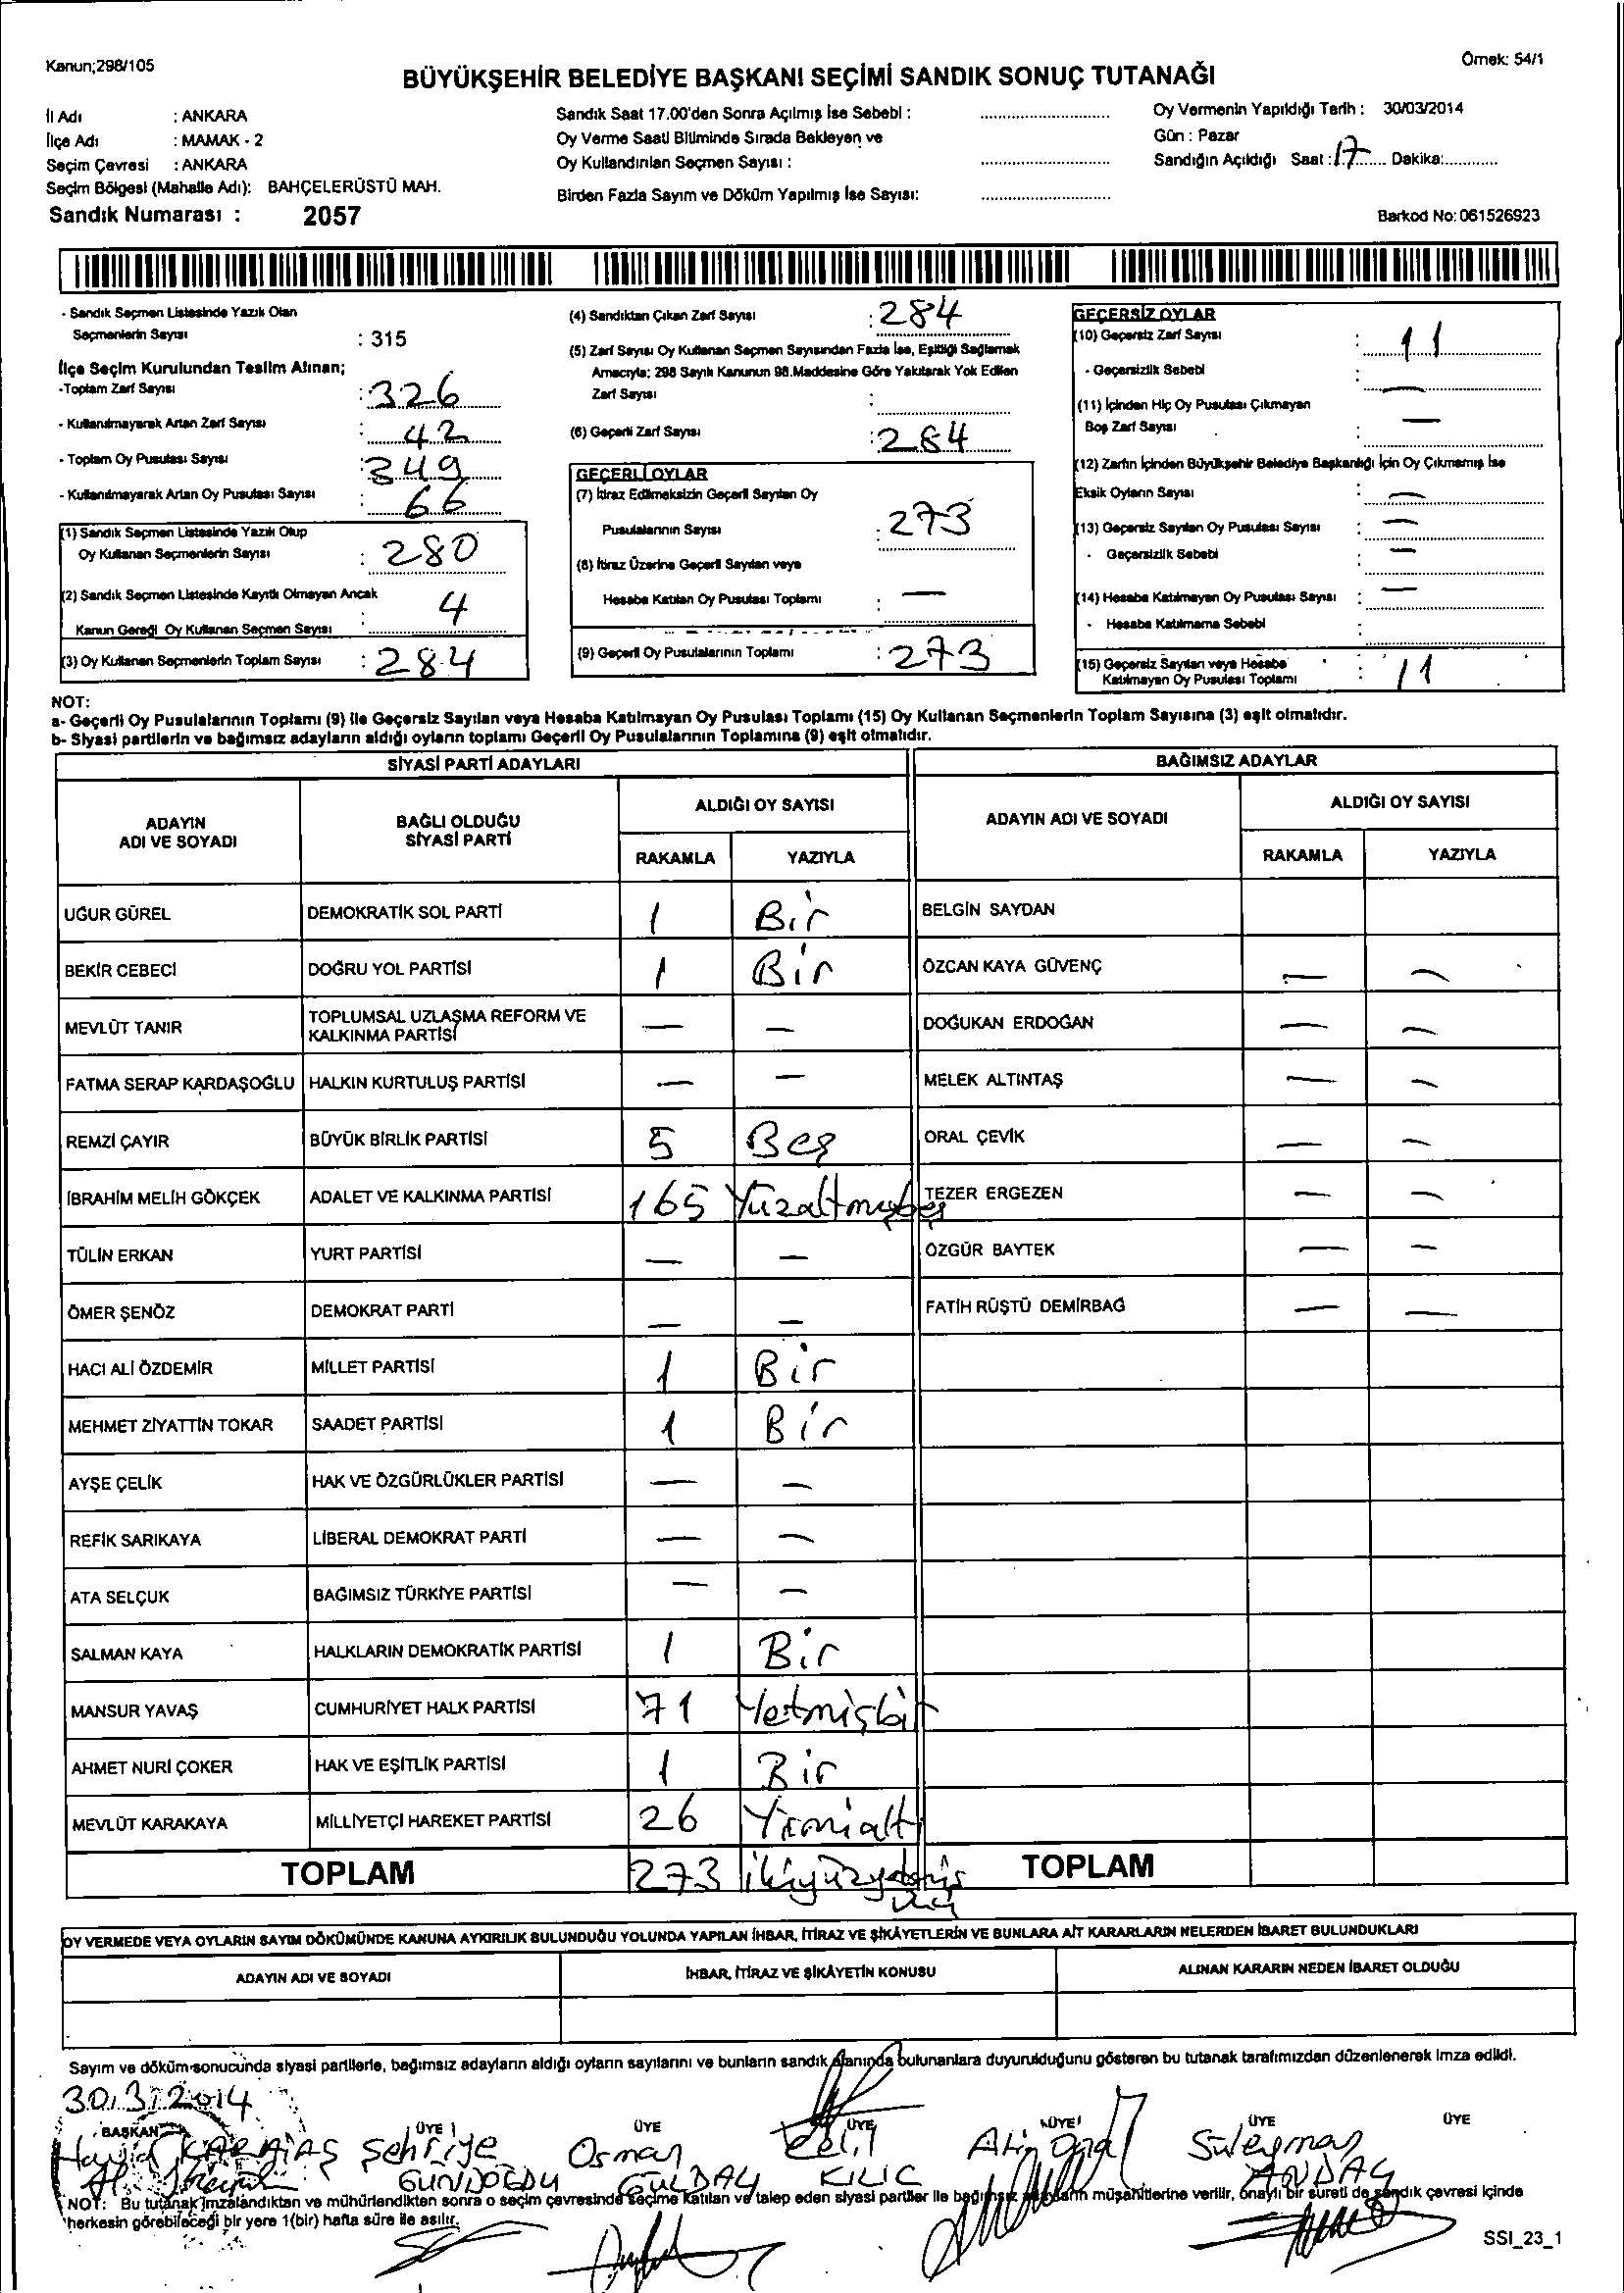 Kanun;298/105
Örnek: 54/1
BÜYÜKŞEHİR BELEDİYE BAŞKANI SEÇİMİ SANDIK SONUÇ TUTANAĞI
İl Adı : ANKARA
İlçe Adı : MAMAK - 2
Seçim Çevresi : ANKARA
Seçim Bölgesi (Mahalle Adı): BAHÇELERÜSTÜ MAH.
Sandık Numarası : 2057
Sandık Saat 17.00'den Sonra Açılmış İse Sebebi :
Oy Verme Saati Bitiminde Sırada Bekleyen ve
Oy Kullandırılan Seçmen Sayısı :
Birden Fazla Sayım ve Döküm Yapılmış İse Sayısı:
Oy Vermenin Yapıldığı Tarih : 30/03/2014
Gün : Pazar
Sandığın Açıldığı Saat : 17 Dakika:
Barkod No: 061526923
- Sandık Seçmen Listesinde Yazılı Olan
Seçmenlerin Sayısı : 315
İlçe Seçim Kurulundan Teslim Alınan;
-Toplam Zarf Sayısı : 326
- Kullanılmayarak Artan Zarf Sayısı : 42
- Toplam Oy Pusulası Sayısı : 349
- Kullanılmayarak Artan Oy Pusulası Sayısı : 66
(1) Sandık Seçmen Listesinde Yazılı Olup
Oy Kullanan Seçmenlerin Sayısı : 280
(2) Sandık Seçmen Listesinde Kayıtlı Olmayan Ancak
Kanun Gereği Oy Kullanan Seçmen Sayısı : 4
(3) Oy Kullanan Seçmenlerin Toplam Sayısı : 284
(4) Sandıktan Çıkan Zarf Sayısı : 284
(5) Zarf Sayısı Oy Kullanan Seçmen Sayısından Fazla İse, Eşitliği Sağlamak
Amacıyla; 298 Sayılı Kanunun 98.Maddesine Göre Yakılarak Yok Edilen
Zarf Sayısı :
(6) Geçerli Zarf Sayısı : 284
GEÇERLİ OYLAR
(7) İtiraz Edilmeksizin Geçerli Sayılan Oy
Pusulalarının Sayısı : 273
(8) İtiraz Üzerine Geçerli Sayılan veya
Hesaba Katılan Oy Pusulası Toplamı : —
(9) Geçerli Oy Pusulalarının Toplamı : 273
GEÇERSİZ OYLAR
(10) Geçersiz Zarf Sayısı : 11
- Geçersizlik Sebebi : —
(11) İçinden Hiç Oy Pusulası Çıkmayan
Boş Zarf Sayısı : —
(12) Zarfın İçinden Büyükşehir Belediye Başkanlığı İçin Oy Çıkmamış İse
Eksik Oyların Sayısı : —
(13) Geçersiz Sayılan Oy Pusulası Sayısı : —
- Geçersizlik Sebebi : —
(14) Hesaba Katılmayan Oy Pusulası Sayısı : —
- Hesaba Katılmama Sebebi :
(15) Geçersiz Sayılan veya Hesaba
Katılmayan Oy Pusulası Toplamı : 11
NOT:
a- Geçerli Oy Pusulalarının Toplamı (9) ile Geçersiz Sayılan veya Hesaba Katılmayan Oy Pusulası Toplamı (15) Oy Kullanan Seçmenlerin Toplam Sayısına (3) eşit olmalıdır.
b- Siyasi partilerin ve bağımsız adayların aldığı oyların toplamı Geçerli Oy Pusulalarının Toplamına (9) eşit olmalıdır.
SİYASİ PARTİ ADAYLARI
ADAYIN ADI VE SOYADI BAĞLI OLDUĞU SİYASİ PARTİ ALDIĞI OY SAYISI
RAKAMLA YAZIYLA
UĞUR GÜREL DEMOKRATİK SOL PARTİ 1 Bir
BEKİR CEBECİ DOĞRU YOL PARTİSİ 1 Bir
MEVLÜT TANIR TOPLUMSAL UZLAŞMA REFORM VE KALKINMA PARTİSİ — —
FATMA SERAP KARDAŞOĞLU HALKIN KURTULUŞ PARTİSİ — —
REMZİ ÇAYIR BÜYÜK BİRLİK PARTİSİ 5 Beş
İBRAHİM MELİH GÖKÇEK ADALET VE KALKINMA PARTİSİ 165 Yüzaltmışbeş
TÜLİN ERKAN YURT PARTİSİ — —
ÖMER ŞENÖZ DEMOKRAT PARTİ — —
HACI ALİ ÖZDEMİR MİLLET PARTİSİ 1 Bir
MEHMET ZİYATTİN TOKAR SAADET PARTİSİ 1 Bir
AYŞE ÇELİK HAK VE ÖZGÜRLÜKLER PARTİSİ — —
REFİK SARIKAYA LİBERAL DEMOKRAT PARTİ — —
ATA SELÇUK BAĞIMSIZ TÜRKİYE PARTİSİ — —
SALMAN KAYA HALKLARIN DEMOKRATİK PARTİSİ 1 Bir
MANSUR YAVAŞ CUMHURİYET HALK PARTİSİ 71 Yetmişbir
AHMET NURİ ÇOKER HAK VE EŞİTLİK PARTİSİ 1 Bir
MEVLÜT KARAKAYA MİLLİYETÇİ HAREKET PARTİSİ 26 Yirmialtı
TOPLAM 273 ikiyüzyetmiş
üç
BAĞIMSIZ ADAYLAR
ADAYIN ADI VE SOYADI ALDIĞI OY SAYISI
RAKAMLA YAZIYLA
BELGİN SAYDAN
ÖZCAN KAYA GÜVENÇ — —
DOĞUKAN ERDOĞAN — —
MELEK ALTINTAŞ — —
ORAL ÇEVİK — —
TEZER ERGEZEN — —
ÖZGÜR BAYTEK — —
FATİH RÜŞTÜ DEMİRBAĞ — —
TOPLAM
OY VERMEDE VEYA OYLARIN SAYIM DÖKÜMÜNDE KANUNA AYKIRILIK BULUNDUĞU YOLUNDA YAPILAN İHBAR, İTİRAZ VE ŞİKÂYETLERİN VE BUNLARA AİT KARARLARIN NELERDEN İBARET BULUNDUKLARI
ADAYIN ADI VE SOYADI İHBAR, İTİRAZ VE ŞİKÂYETİN KONUSU ALINAN KARARIN NEDEN İBARET OLDUĞU
Sayım ve döküm sonucunda siyasi partilerle, bağımsız adayların aldığı oyların sayılarını ve bunların sandık alanında bulunanlara duyurulduğunu gösteren bu tutanak tarafımızdan düzenlenerek imza edildi.
30.3.2014
BAŞKAN ÜYE ÜYE ÜYE ÜYE ÜYE ÜYE
Şehriye Osman Ali Süleyman
GÜNDOĞDU GÜLDALI KILIÇ ANDAÇ
NOT: Bu tutanak imzalandıktan ve mühürlendikten sonra o seçim çevresinde seçime katılan ve talep eden siyasi partiler ile bağımsız adayların müşahitlerine verilir, onaylı bir sureti de sandık çevresi içinde
herkesin görebileceği bir yere 1(bir) hafta süre ile asılır.
SSI_23_1